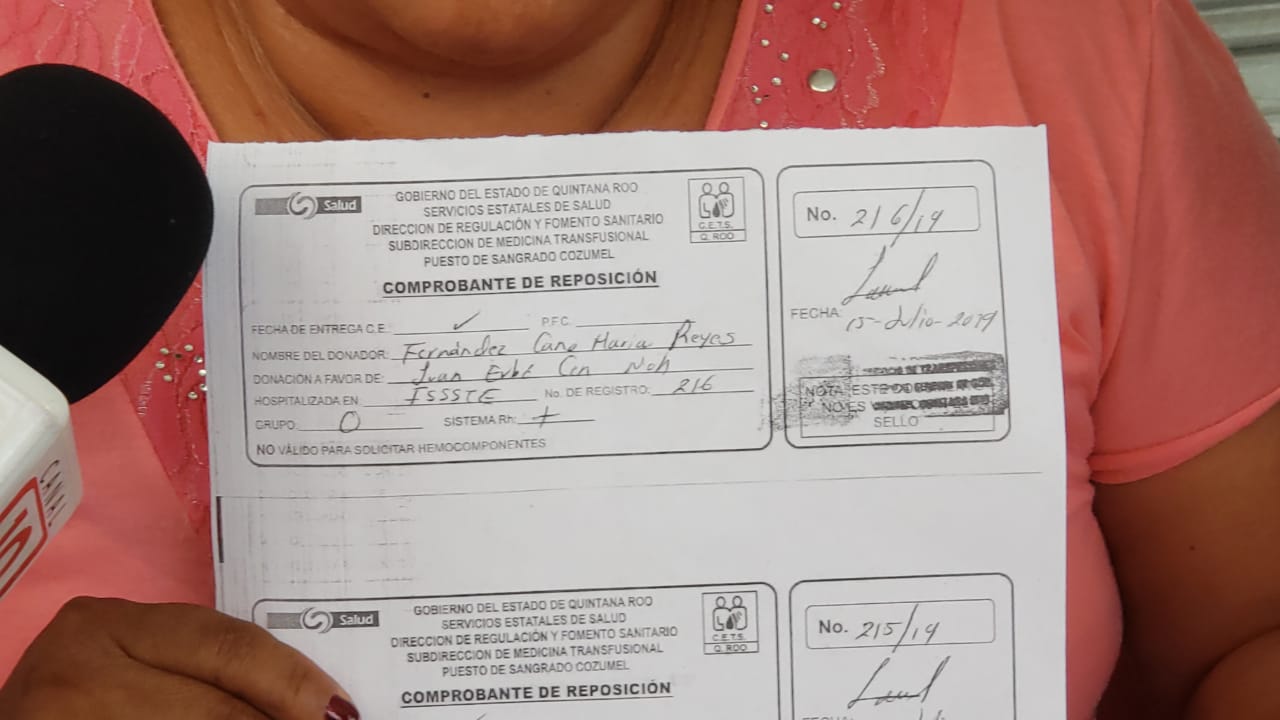 Salud
GOBIERNO DEL ESTADO DE QUINTANA ROO
SERVICIOS ESTATALES DE SALUD
DIRECCION DE REGULACIÓN Y FOMENTO SANITARIO
SUBDIRECCION DE MEDICINA TRANSFUSIONAL
PUESTO DE SANGRADO COZUMEL
C.E.T.S.
Q. ROO
COMPROBANTE DE REPOSICIÓN
FECHA DE ENTREGA C.E.: ✓ P.F.C.
NOMBRE DEL DONADOR: Fernández Cano Maria Reyes
DONACIÓN A FAVOR DE: Juan Can Noh
HOSPITALIZADA EN: ISSSTE No. DE REGISTRO: 216
GRUPO: O SISTEMA Rh: +
NO VÁLIDO PARA SOLICITAR HEMOCOMPONENTES
No. 216/19
FECHA: 15-Julio-2019
NOTA: ESTE DO
NO ES
SELLO
CANAL
Salud
GOBIERNO DEL ESTADO DE QUINTANA ROO
SERVICIOS ESTATALES DE SALUD
DIRECCION DE REGULACIÓN Y FOMENTO SANITARIO
SUBDIRECCION DE MEDICINA TRANSFUSIONAL
PUESTO DE SANGRADO COZUMEL
C.E.T.S.
Q. ROO
COMPROBANTE DE REPOSICIÓN
No. 215/19